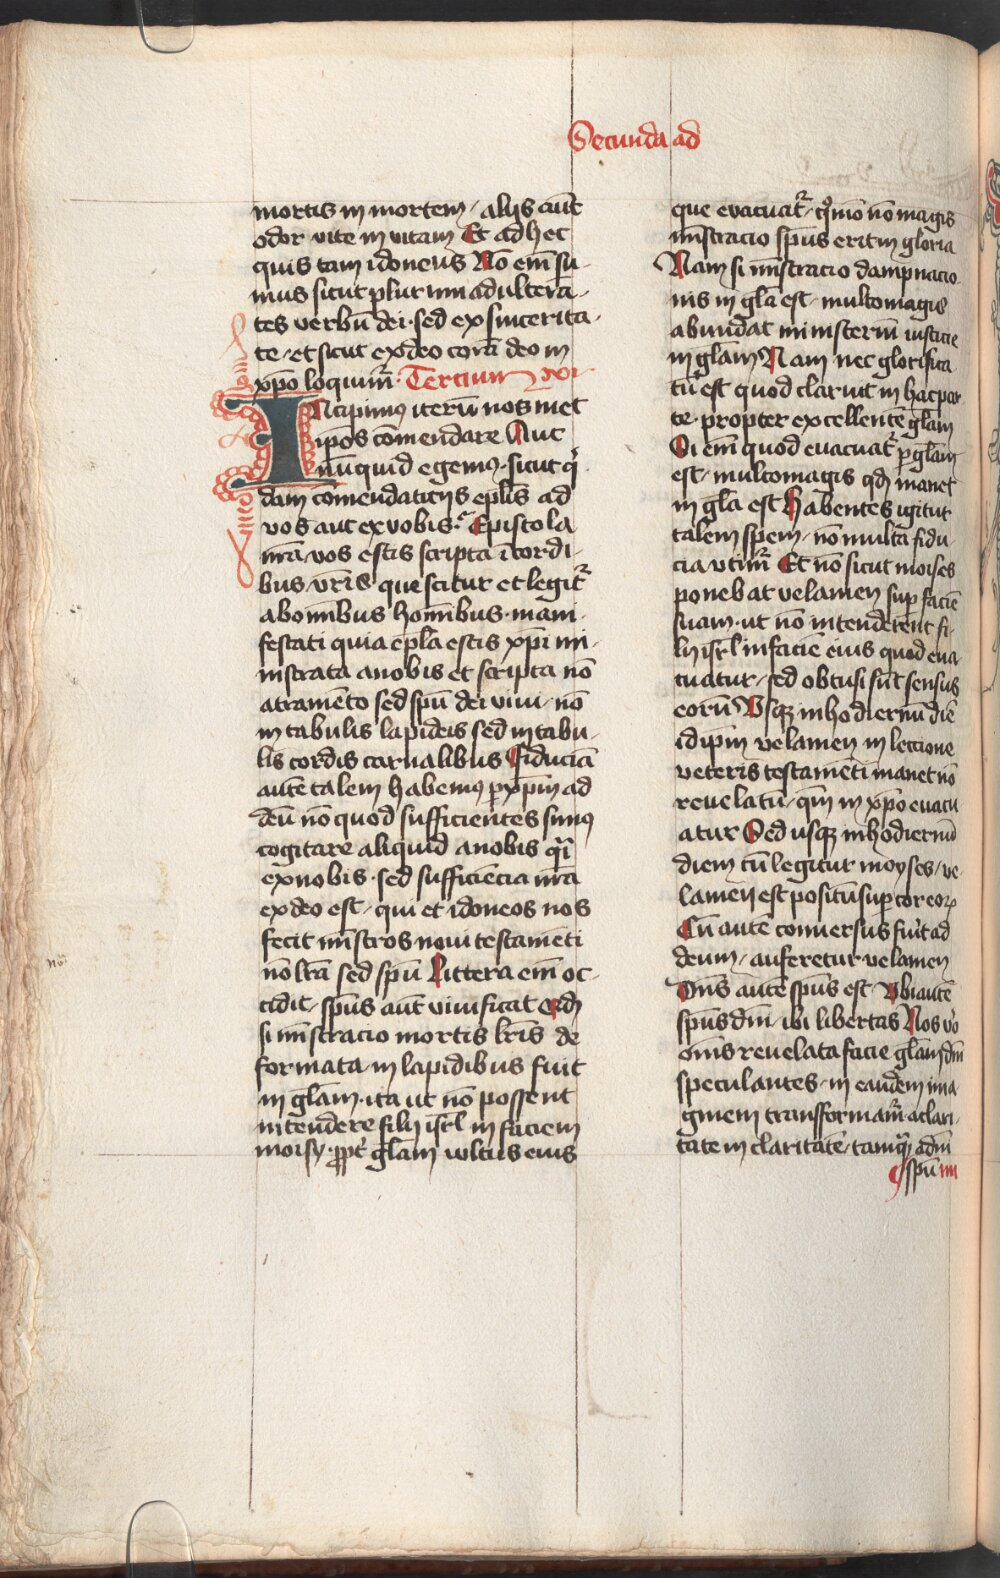 Secunda ad
mortis in mortem / alijs aut̄
odor vite in vitam Et ad hec
quis tam idoneus No em̄ su-
mus sicut plurimi adulterā-
tes verbū dei · sed ex sincerita-
te / et sicut ex deo corā deo in
xp̄o loquim̄r · Tercium
Incipimus iterū nos met
ipōs cōmendare Aut
nūquid egemus · sicut q̇
dam cōmendaticijs ep̄lis ad
vos aut ex vobis · Epistola
nr̄a vos estis scripta ī cordi-
bus vr̄is que scitur et legit̄r
ab om̄ibus hom̄ibus · mani-
festati quia ep̄la estis xp̄i mi-
nistrata a nobis et scripta nō
atramēto sed sp̄u dei viui · nō
in tabulis lapideis sed in tabu-
lis cordis carnalibus Fiduciā
autē talem habemus p xp̄m ad
deū nō quod sufficientes simus
cogitare aliquid a nobis q̄i
ex nobis · sed sufficiencia nr̄a
ex deo est / qui et idoneos nos
fecit mīstros noui testamēti
nō lr̄a sed sp̄u Littera em̄ oc-
cidit / sp̄us aut̄ viuificat Qd
si mīstracio mortis lr̄is de
formata in lapidibus fuit
in glām · ita ut nō possent
intendere filij isrl̄ in faciem
moisy · ppt̄ glām vultus eius
que evacuat̄r / q̊mō nō magis
mīstracio sp̄us erit in gloria
Nam si mīstracio dampnacio
nis in glā est / multomagis
abundat ministeriū iusticie
in glām Nam nec glorifica
tū est quod claruit in hac par
te · propter excellentē glām
Si em̄ quod evacuat̄r p glām
est / multomagis qd manet
in glā est Habentes igitur
talem spem / nō multa fidu
cia vtim̄r Et nō sicut moises
ponebat velamen sup faciē
suam · ut nō intenderent fi-
lij isrl̄ in faciē eius quod eua
cuatur / sed obtusi sūt sensus
eorū Vsq; in hodiernū diē
idip̄m velamen in leccione
veteris testamēti manet nō
reuelatū / qm̄ in xp̄o euacu
atur Sed usq; in hodiernū
diem cū legitur moyses / ve
lamen est positū sup cor eorꝝ
Cū autē conuersus fuīt ad
deum / auferetur velamen
Dn̄s autē sp̄us est · Vbi autē
sp̄us dn̄i ibi libertas Nos v̊o
om̄s reuelata facie glām dn̄i
speculantes / in eandem ima
ginem transformam̄r a clari
tate in claritatē / tamq̄ a dn̄i
sp̄u iiii